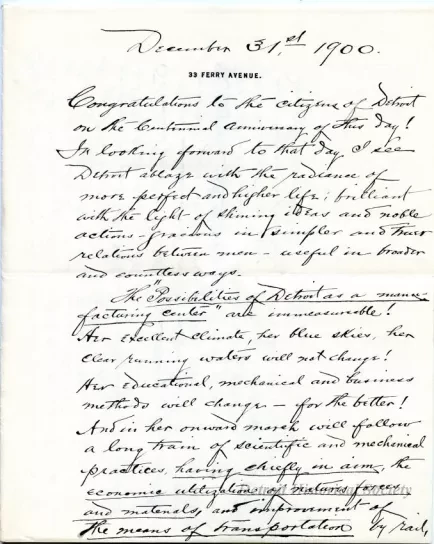 December 31st 1900.
33 FERRY AVENUE.
Congratulations to the citizens of Detroit
on the Centennial Anniversary of this day!
In looking forward to that day, I see
Detroit ablaze with the radiance of
more perfect and higher life; brilliant
with the light of shining ideas and noble
actions - gracious in simpler and truer
relations between men - useful in broader
and countless ways.
The "Possibilities of Detroit as a manu-
facturing center" are immeasurable!
Her Excellent climate, her blue skies, her
clear running waters will not change!
Her Educational, mechanical and business
methods will change - for the better!
And in her onward march will follow
a long train of scientific and mechanical
practices, having chiefly in aim, the
economic utilization of natures forces
and materials, and improvement of
the means of transportation by rail,
Detroit Historical Society